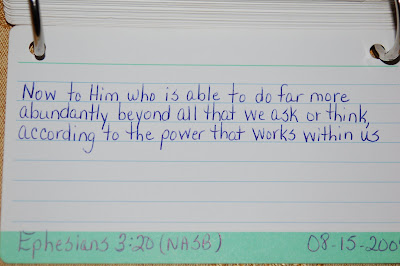 Now to Him who is able to do far more
abundantly beyond all that we ask or think,
according to the power that works within us
Ephesians 3:20 (NASB) 08-15-200